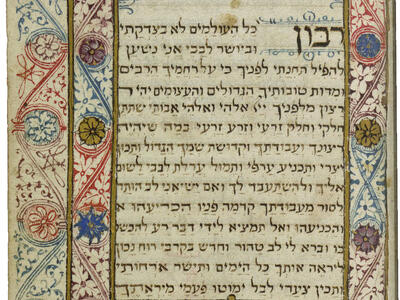 רבון כל העולמים לא בצדקתי
וביושר לבבי אני נשען
להפיל תחנתי לפניך כי על רחמיך הרבים
ומדות טובותיך הגדולים והעצומים יהי ר
רצון מלפניך ייי אלהי ואלהי אבותי שתתן
חלקי וחלק זרעי וזרע זרעי במה שיהיה
רצונך ועבודתך וקדושת שמך הגדול ותמו
יצרי ותכניע ערפי ותמול ערלת לבבי לשום
אליך ולהשתעבד לך ואם ישיאני לבהותך
לסור מעבודתך קדמה פניו הכריעהו א
והכניעהו ואל תמציא לידי דבר רע להכש
בו וברא לי לב טהור וחדש בקרבי רוח נכון
ליראה אותך כל הימים ותישר ארחותי
ותכין צעדי לבל ימוטו פעמי מיראתך